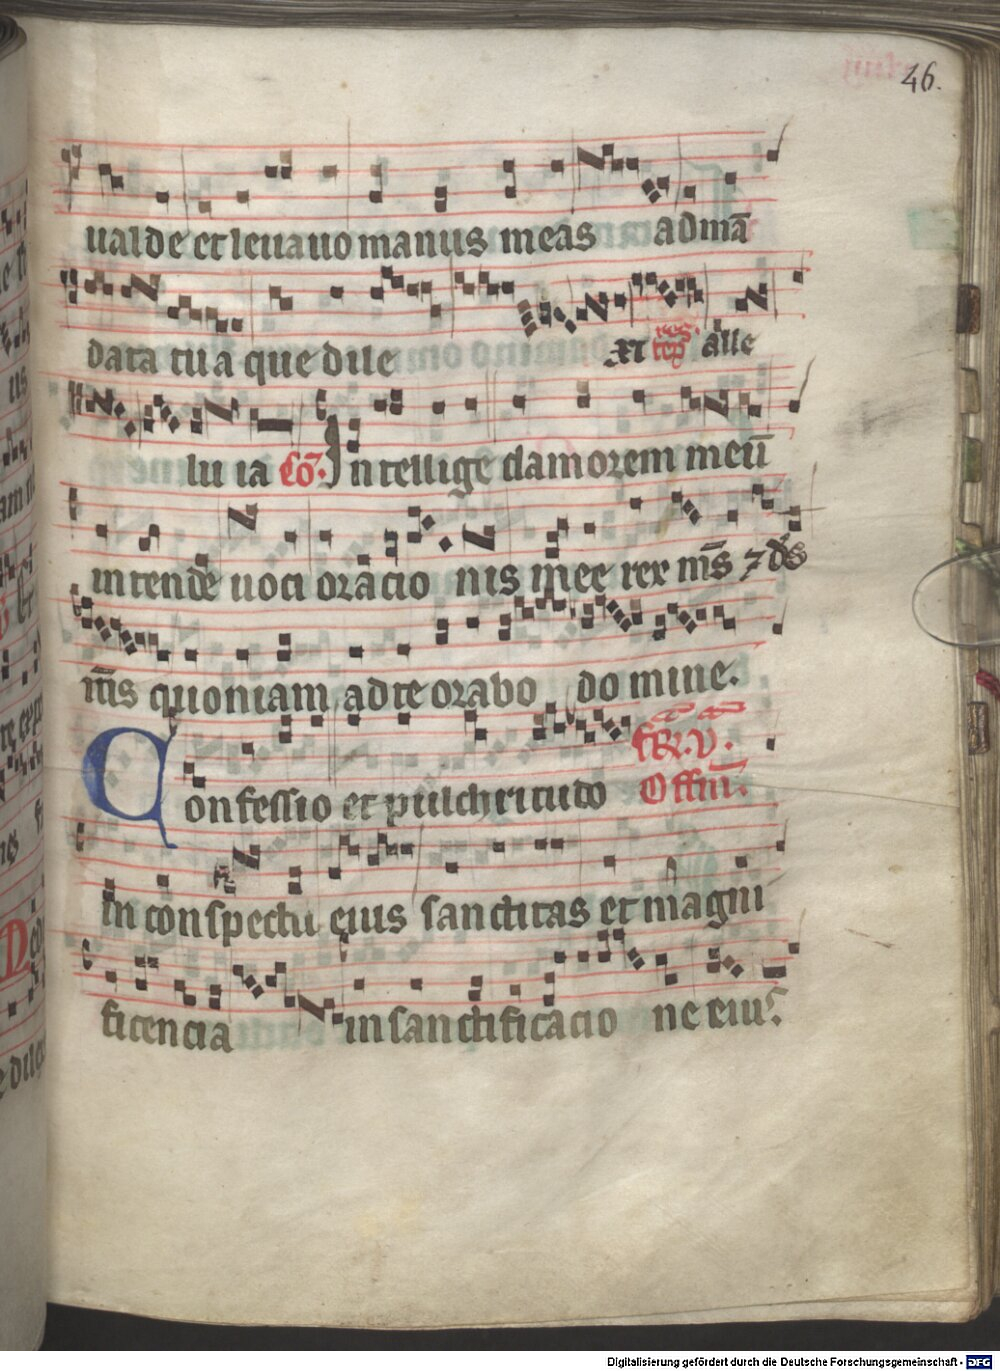 46.
ualde et leuauo manus meas ad mā
data tua que dile xi alle
lu ia Co. Intellige clamorem meū
intende uoci oracio nis mee rex m̄s ⁊ ds
m̄s quoniam ad te orabo domine.
Confessio et pulchritudo
Offm̄.
in conspectu eius sanctitas et magni
ficencia in sanctificacio ne eius.
Digitalisierung gefördert durch die Deutsche Forschungsgemeinschaft - DFG